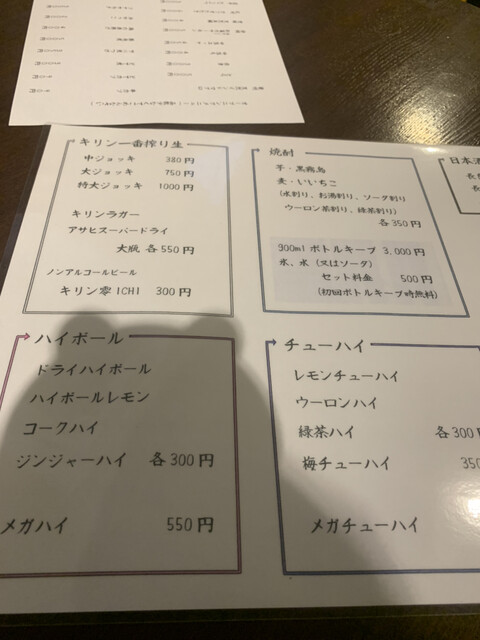 キリン一番搾り生
中ジョッキ 380円
大ジョッキ 750円
特大ジョッキ 1000円
キリンラガー
アサヒスーパードライ
大瓶 各550円
ノンアルコールビール
キリン零ICHI 300円
焼酎
芋・黒霧島
麦・いいちこ
(水割り、お湯割り、ソーダ割り
ウーロン茶割り、緑茶割り)
各350円
900mlボトルキープ 3,000円
氷、水(又はソーダ)
セット料金 500円
(初回ボトルキープ時無料)
日本酒
ハイボール
ドライハイボール
ハイボールレモン
コークハイ
ジンジャーハイ 各300円
メガハイ 550円
チューハイ
レモンチューハイ
ウーロンハイ
緑茶ハイ 各300
梅チューハイ 350
メガチューハイ